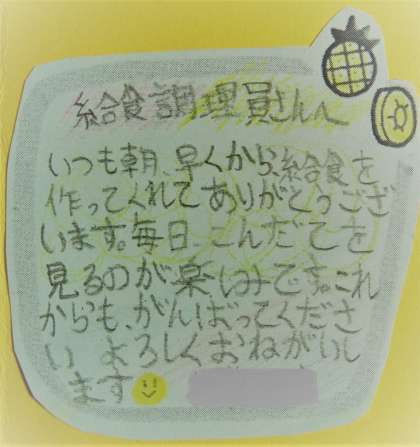 給食調理員さんへ
いつも朝、早くから、給食を
作ってくれてありがとうござ
います。毎日、こんだてを
見るのが楽しみです。これ
からも、がんばってくださ
い よろしくおねがいし
ます